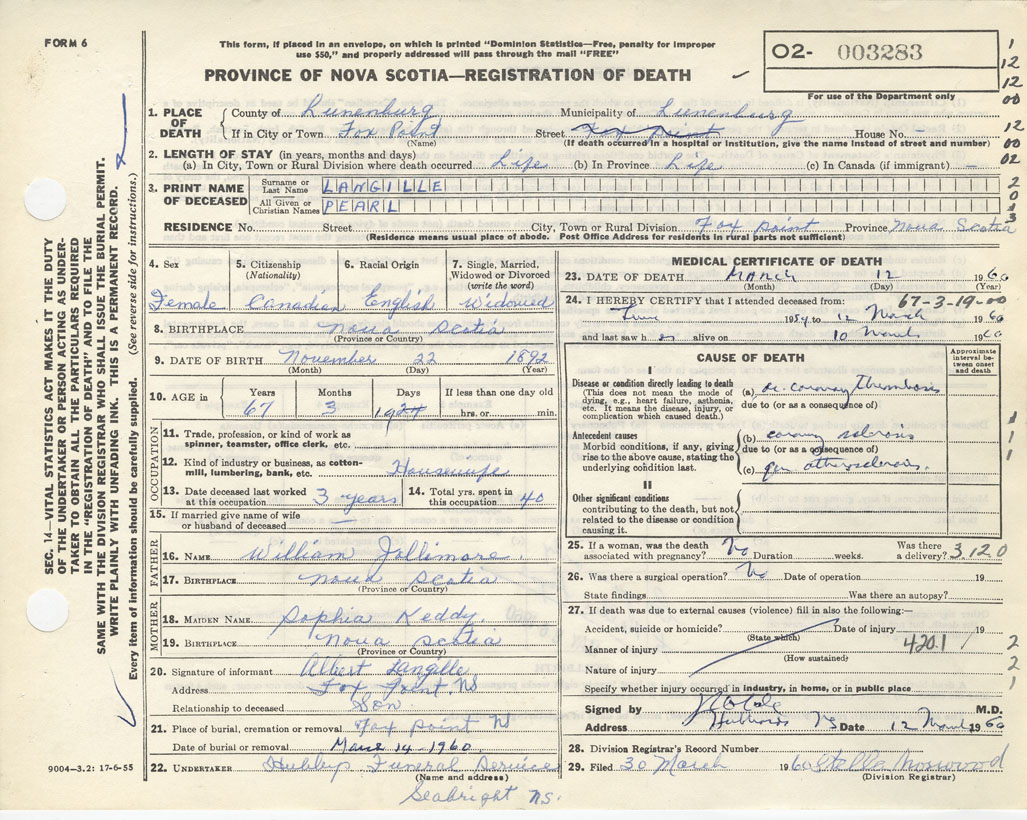 FORM 6
This form, if placed in an envelope, on which is printed "Dominion Statistics—Free, penalty for improper
use $50," and properly addressed will pass through the mail "FREE"
PROVINCE OF NOVA SCOTIA—REGISTRATION OF DEATH
O2- 003283
For use of the Department only
1
12
12
00
12
00
02
2
0
0
3
1. PLACE OF DEATH County of Lunenburg Municipality of Lunenburg
If in City or Town Fox Point Street Fox Point House No. -
(Name) (If death occurred in a hospital or institution, give the name instead of street and number)
2. LENGTH OF STAY (in years, months and days)
(a) In City, Town or Rural Division where death occurred Life (b) In Province Life (c) In Canada (if immigrant) —
3. PRINT NAME OF DECEASED Surname or Last Name LANGILLE
All Given or Christian Names PEARL
RESIDENCE No. Street City, Town or Rural Division Fox Point Province Nova Scotia
(Residence means usual place of abode. Post Office Address for residents in rural parts not sufficient)
SEC. 14—VITAL STATISTICS ACT MAKES IT THE DUTY
OF THE UNDERTAKER OR PERSON ACTING AS UNDER-
TAKER TO OBTAIN ALL THE PARTICULARS REQUIRED
IN THE "REGISTRATION OF DEATH" AND TO FILE THE
SAME WITH THE DIVISION REGISTRAR WHO SHALL ISSUE THE BURIAL PERMIT.
WRITE PLAINLY WITH UNFADING INK. THIS IS A PERMANENT RECORD.
Every item of information should be carefully supplied. (See reverse side for instructions.)
4. Sex 5. Citizenship (Nationality) 6. Racial Origin 7. Single, Married, Widowed or Divorced (write the word)
Female Canadian English Widowed
8. BIRTHPLACE Nova Scotia
(Province or Country)
9. DATE OF BIRTH November 22 1892
(Month) (Day) (Year)
10. AGE in Years Months Days If less than one day
67 3 19 hrs. or min.
OCCUPATION
11. Trade, profession, or kind of work as
spinner, teamster, office clerk, etc.
12. Kind of industry or business, as cotton-
mill, lumbering, bank, etc. Housewife
13. Date deceased last worked at this occupation 3 years 14. Total yrs. spent in this occupation 40
15. If married give name of wife
or husband of deceased —
FATHER
16. NAME William Jollimore
17. BIRTHPLACE Nova Scotia
(Province or Country)
MOTHER
18. MAIDEN NAME Sophia Keddy
19. BIRTHPLACE Nova Scotia
(Province or Country)
20. Signature of informant Albert Langille
Address Fox Point NS
Relationship to deceased Son
21. Place of burial, cremation or removal Fox Point NS
Date of burial or removal March 14 - 1960
22. UNDERTAKER Hubleys Funeral Service
(Name and address)
Seabright NS.
9004—3.2: 17-6-55
MEDICAL CERTIFICATE OF DEATH
23. DATE OF DEATH MARCH 12 1960
(Month) (Day) (Year)
24. I HEREBY CERTIFY that I attended deceased from: 67-3-19-00
June 1954 to 12 March 1960
and last saw h er alive on 10 March 1960
CAUSE OF DEATH
Approximate interval between onset and death
I
Disease or condition directly leading to death
(This does not mean the mode of
dying, e.g., heart failure, asthenia,
etc. It means the disease, injury, or
complication which caused death.)
(a) ac. coronary thrombosis
due to (or as a consequence of)
Antecedent causes
Morbid conditions, if any, giving
rise to the above cause, stating the
underlying condition last.
(b) coronary sclerosis
due to (or as a consequence of)
(c) gen atherosclerosis.
II
Other significant conditions
contributing to the death, but not
related to the disease or condition
causing it.
1
1
1
25. If a woman, was the death associated with pregnancy? No Duration weeks. Was there a delivery? 3,120
26. Was there a surgical operation? No Date of operation 19
State findings Was there an autopsy?
27. If death was due to external causes (violence) fill in also the following:—
Accident, suicide or homicide? Date of injury 19
(State which)
Manner of injury 4201 / 2
(How sustained)
Nature of injury 2
Specify whether injury occurred in industry, in home, or in public place 1
Signed by M.D.
Address Hubbards NS Date 12 March 1960
28. Division Registrar's Record Number
29. Filed 30 March 1960 Stella Norwood
(Division Registrar)